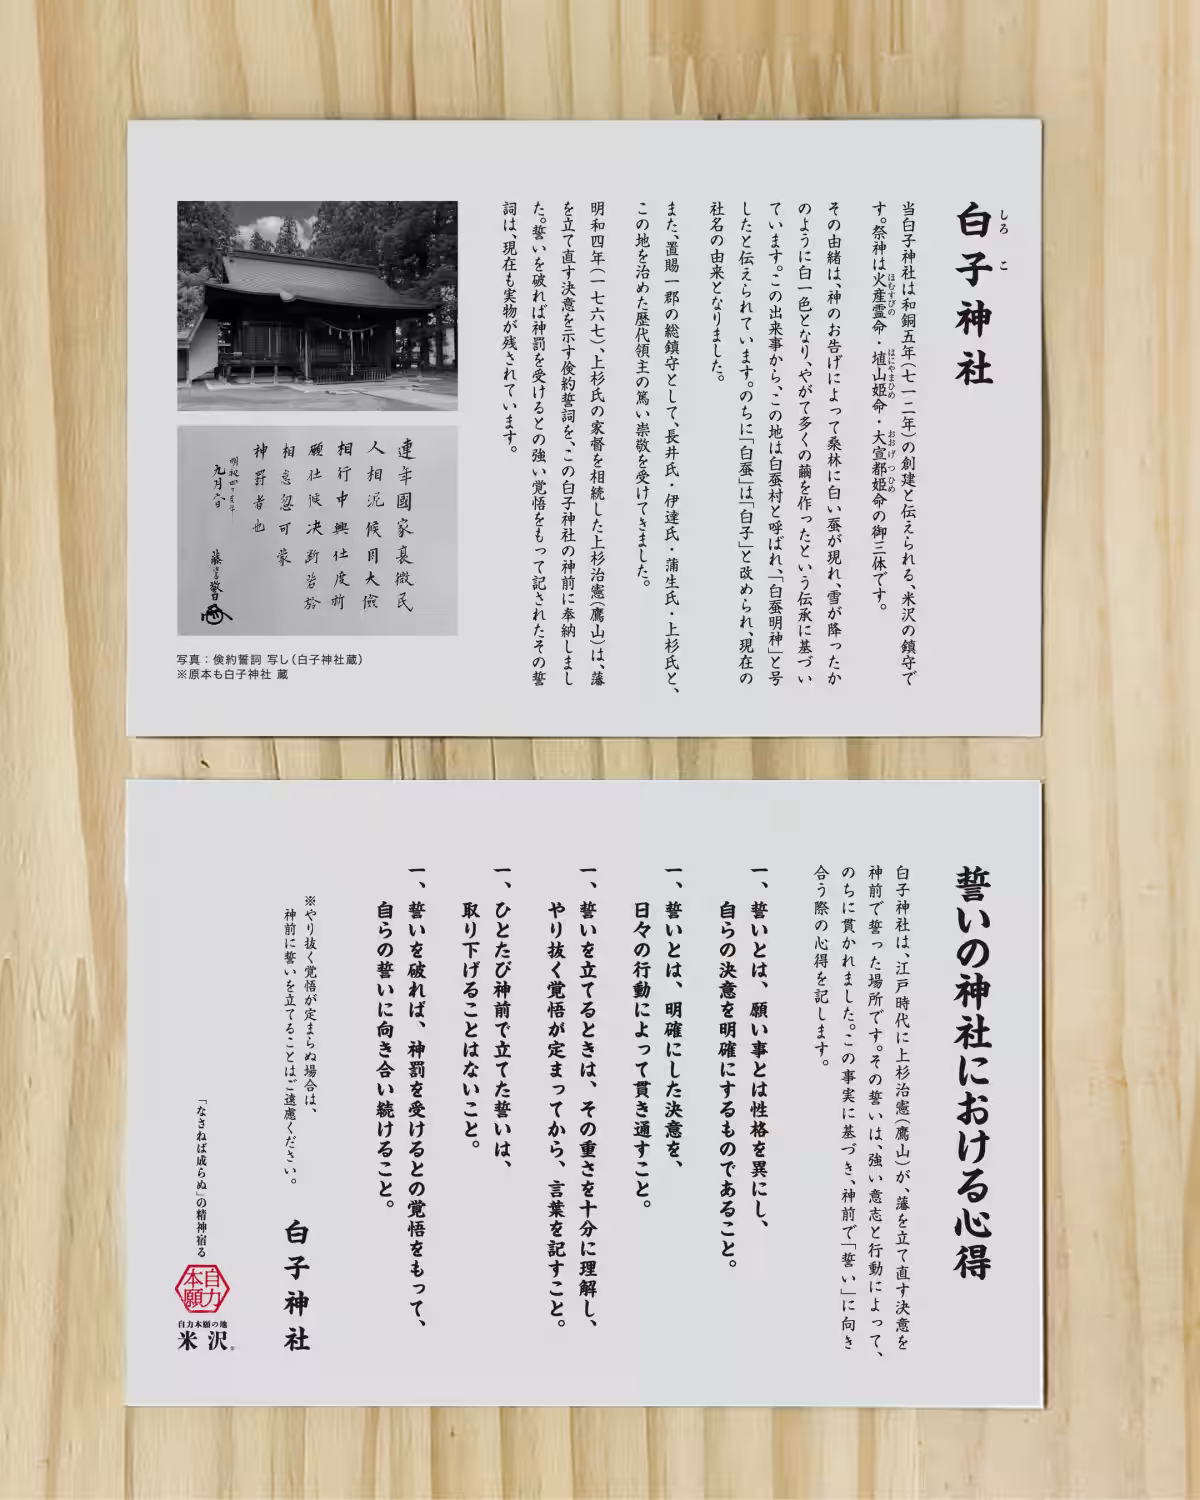 白子神社
しろこ
当白子神社は和銅五年(七一二年)の創建と伝えられる、米沢の鎮守で
す。祭神は火産霊命・埴山姫命・大宣都姫命の御三体です。
ほむすびの はにやまひめ おおげつひめ
その由緒は、神のお告げによって桑林に白い蚕が現れ、雪が降ったか
のように白一色となり、やがて多くの繭を作ったという伝承に基づい
ています。この出来事から、この地は白蚕村と呼ばれ、「白蚕明神」と号
したと伝えられています。のちに「白蚕」は「白子」と改められ、現在の
社名の由来となりました。
また、置賜一郡の総鎮守として、長井氏・伊達氏・蒲生氏・上杉氏と、
この地を治めた歴代領主の篤い崇敬を受けてきました。
明和四年(一七六七)、上杉氏の家督を相続した上杉治憲(鷹山)は、藩
を立て直す決意を示す倹約誓詞を、この白子神社の神前に奉納しまし
た。誓いを破れば神罰を受けるとの強い覚悟をもって記されたその誓
詞は、現在も実物が残されています。
連年國家衰微民
人相泥候間大儉
相行中興仕度祈
願仕候決断若於
相怠忽可蒙
神罸者也
九月六日
写真:倹約誓詞 写し(白子神社蔵)
※原本も白子神社 蔵
誓いの神社における心得
白子神社は、江戸時代に上杉治憲(鷹山)が、藩を立て直す決意を
神前で誓った場所です。その誓いは、強い意志と行動によって、
のちに貫かれました。この事実に基づき、神前で「誓い」に向き
合う際の心得を記します。
一、誓いとは、願い事とは性格を異にし、
自らの決意を明確にするものであること。
一、誓いとは、明確にした決意を、
日々の行動によって貫き通すこと。
一、誓いを立てるときは、その重さを十分に理解し、
やり抜く覚悟が定まってから、言葉を記すこと。
一、ひとたび神前で立てた誓いは、
取り下げることはないこと。
一、誓いを破れば、神罰を受けるとの覚悟をもって、
自らの誓いに向き合い続けること。
※やり抜く覚悟が定まらぬ場合は、
神前に誓いを立てることはご遠慮ください。
白子神社
「なさねば成らぬ」の精神宿る
自力本願
自力本願の地
米沢